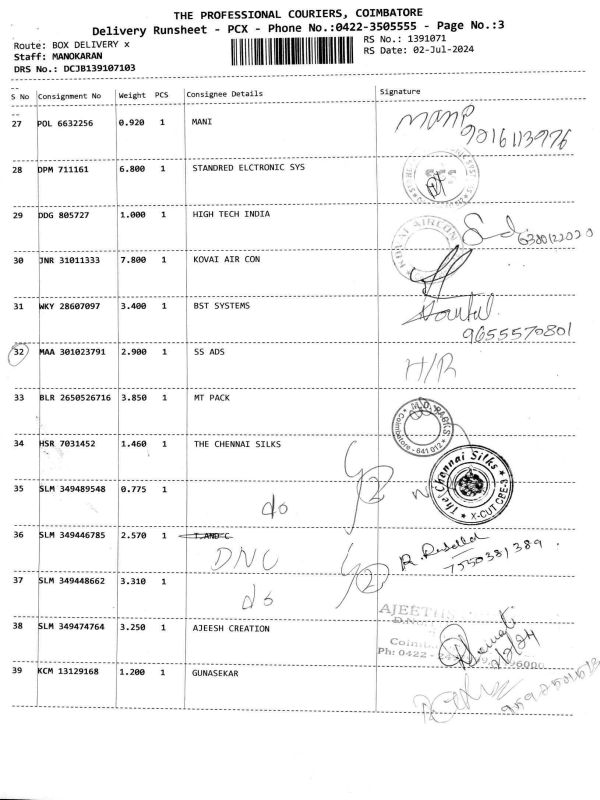 THE PROFESSIONAL COURIERS, COIMBATORE
Delivery Runsheet - PCX - Phone No.:0422-3505555 - Page No.:3
Route: BOX DELIVERY x
RS No.: 1391071
Staff: MANOKARAN
RS Date: 02-Jul-2024
DRS No.: DCJB139107103
S No Consignment No Weight PCS Consignee Details Signature
27 POL 6632256 0.920 1 MANI
9216113976
28 DPM 711161 6.800 1 STANDRED ELCTRONIC SYS
29 DDG 805727 1.000 1 HIGH TECH INDIA
6380122020
30 JNR 31011333 7.800 1 KOVAI AIR CON
KOVAI AIRCON
31 WKY 28607097 3.400 1 BST SYSTEMS
9655570801
32 MAA 301023791 2.900 1 SS ADS
H/R
33 BLR 2650526716 3.850 1 MT PACK
Coimbatore - 641 012
34 HSR 7031452 1.460 1 THE CHENNAI SILKS
The Chennai Silks
X-CUT CBE-3
35 SLM 349489548 0.775 1
do
2
36 SLM 349446785 2.570 1 T.AND C
DNC
7550381389
37 SLM 349448662 3.310 1
do
2
38 SLM 349474764 3.250 1 AJEESH CREATION
39 KCM 13129168 1.200 1 GUNASEKAR